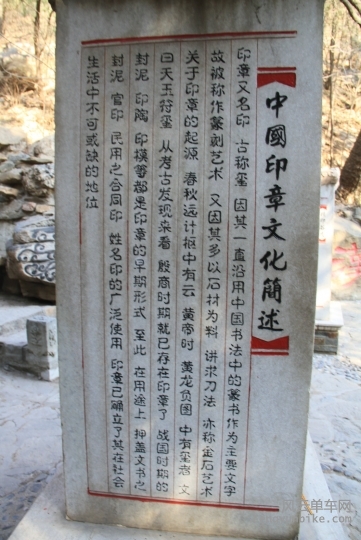 中國印章文化簡述
印章又名印 古称玺 因其一直沿用中国书法中的篆书作为主要文字
故被称作篆刻艺术 又因其多以石材为料 讲求刀法 亦称金石艺术
关于印章的起源 春秋远计抠中有云 黄帝时 黄龙负图 中有玺者 文
曰天王符玺 从考古发现来看 殷商时期就已存在印章了 战国时期的
封泥 印陶 印模等都是印章的早期形式 至此 在用途上 押盖文书之
封泥 官印 民用之合同印 姓名印的广泛使用 印章已确立了其在社会
生活中不可或缺的地位
单车网
bike.com